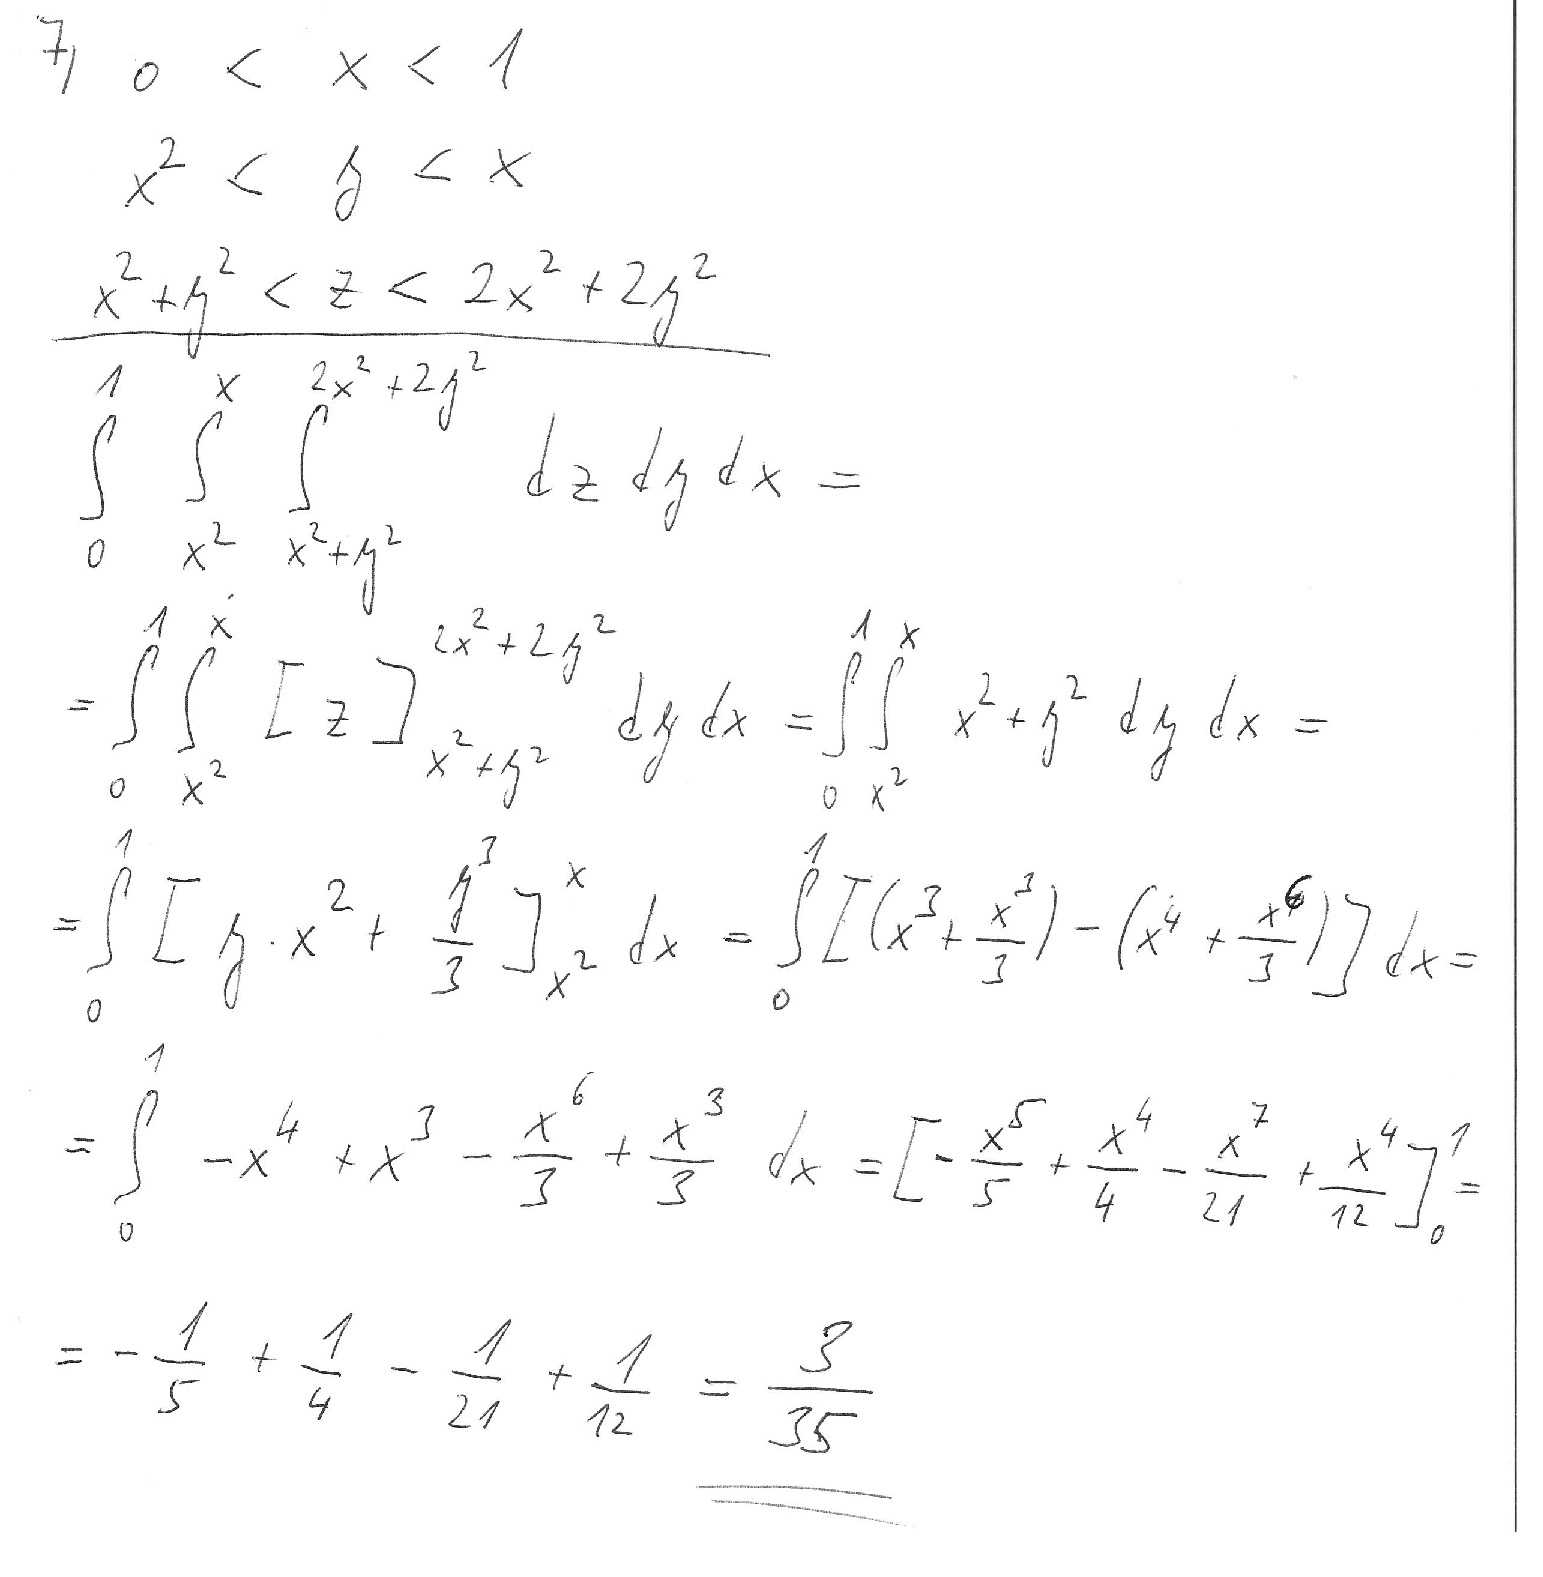 7) 0 < x < 1
x² < y < x
x²+y² < z < 2x²+2y²
∫₀¹ ∫_{x²}^{x} ∫_{x²+y²}^{2x²+2y²} dz dy dx =
= ∫₀¹ ∫_{x²}^{x} [z]_{x²+y²}^{2x²+2y²} dy dx = ∫₀¹ ∫_{x²}^{x} x²+y² dy dx =
= ∫₀¹ [y·x² + y³/3]_{x²}^{x} dx = ∫₀¹ [(x³ + x³/3) − (x⁴ + x⁶/3)] dx =
= ∫₀¹ −x⁴ + x³ − x⁶/3 + x³/3 dx = [−x⁵/5 + x⁴/4 − x⁷/21 + x⁴/12]₀¹ =
= −1/5 + 1/4 − 1/21 + 1/12 = 3/35